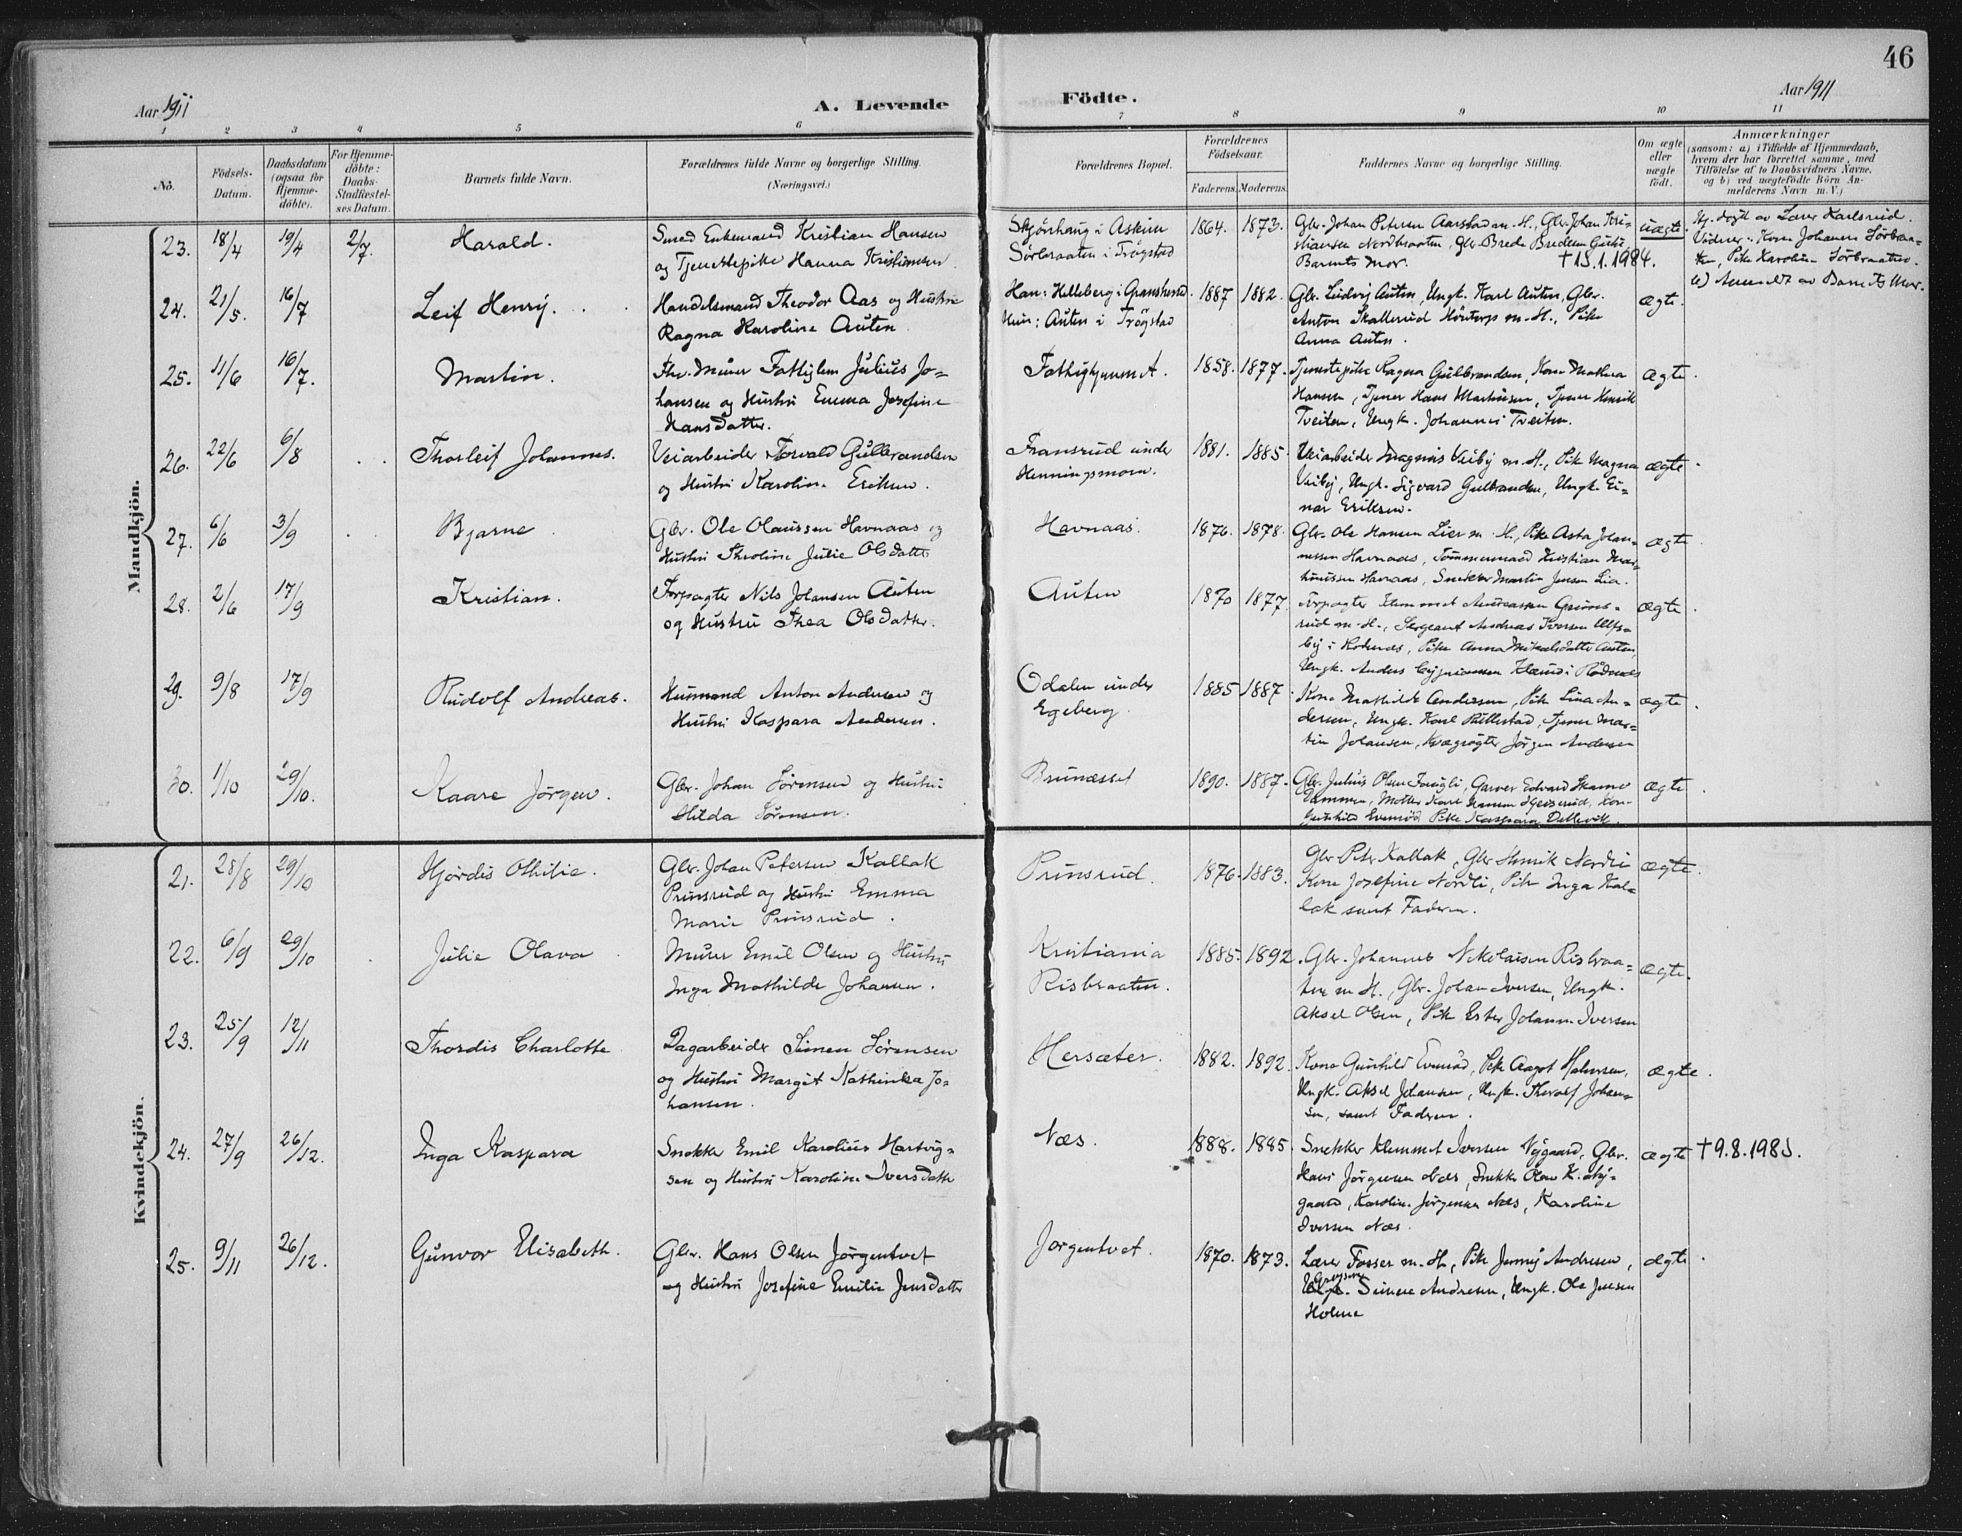 46
Aar 1911
A. Levende
Födte.
Aar 1911
1 2 3 4 5 6 7 8 9 10 11
No.
Födsels-
Datum.
Daabsdatum
(ogsaa for
Hjemme-
döbte).
For Hjemme-
döbte:
Daabs-
Stadfæstel-
ses Datum.
Barnets fulde Navn.
Forældrenes fulde Navne og borgerlige Stilling.
(Næringsvei.)
Forældrenes Bopæl.
Forældrenes
Födselsaar.
Faderens. Moderens.
Faddernes Navne og borgerlige Stilling.
Om ægte
eller
uægte
födt.
Anmærkninger
(saasom: a) i Tilfælde af Hjemmedaab,
hvem der har forrettet samme, med
Tilföielse af to Daabsvidners Navne,
og b) ved uægtefödte Börn An-
melderens Navn m. V.)
Mandkjön.
23. 18/4 19/4 2/7. Harald.
Smed Enkemand Kristian Hansen
og Tjenestepike Hanna Kristiansen
Skjönhaug i Askim
Sörbraaten i Trögstad
1864. 1873.
Gbr. Johan Petersen Aarstad m. H., Gbr. Johan Kri-
stiansen Nordbraaten, Gbr. Brede Bredesen
Barnets Mor. †15.1.1984.
uægte
Hj. döpt av Lærer Karlsrud.
Vidner: Kone Johanne Sörbraa-
ten, Pike Karoline Sörbraaten.
b) Anmeldt av Barnets Mor.
24. 21/5. 16/7 Leif Henry.
Handelsmand Theodor Aas og Hustru
Ragna Karoline Auten
Han: Helleberg i
Hun: Auten i Trögstad
1887 1882.
Gbr. Ludvig Auten, Ungk. Karl Auten, Gbr.
Anton Skallerud m. H., Pike
Anna Auten.
ægte.
25. 11/6 16/7. Martin.
Fhv. Murer Fattiglem Julius Jo-
hansen og Hustru Emma Josefine
Hansdatter.
Fattighjemmet.
1858. 1877.
Tjenestepike Ragna Gulbrandsen, Kone Mathea
Hansen, Tjener Hans Martinsen, Tjener Henrik
Tveiten, Ungk. Johannes Tveiten.
ægte.
26. 22/6 6/8 Thorleif Johannes.
Veiarbeider Torvald Gulbrandsen
og Hustru Karoline Eriksen.
Fransrud under
Henningsmoen.
1881. 1885.
Veiarbeider Magnus Veiby m. H., Pike Magna
Veiby, Ungk. Sigvard Gulbrandsen, Ungk. Ei-
nar Eriksen.
ægte.
27. 6/6 3/9 Bjarne
Gbr. Ole Olaussen Havnaas og
Hustru Theoline Julie Olsdatter
Havnaas.
1876. 1878.
Gbr. Ole Hansen Lier m. H., Pike Asta Johan-
nessen Havnaas, Tömmermand Kristian Mar-
Havnaas, Snekker Martin Jensen Lia.
ægte.
28. 2/6 17/9 Kristian.
Forpagter Nils Johansen Auten
og Hustru Thea Olsdatter.
Auten
1870 1877.
Forpagter Klemmet Andreassen Grims-
rud m. H., Sergeant Andreas Iversen Ulfs-
by i Rakkestad, Pike Anna Mikalsdatter Auten,
Ungk. Anders i Rödenes
ægte.
29. 9/8 17/9 Rudolf Andreas.
Husmand Anton Andersen og
Hustru Kaspara Andersen.
Odalen under
Egeberg.
1885 1887.
Kone Mathilde Andersen, Pike Lina An-
dersen, Ungk. Karl Rillestad, Tjener Mar-
tin Johansen, Kvægrögter Jörgen Andersen
ægte.
30. 1/10 29/10. Kaare Jörgen.
Gbr. Johan Sörensen og Hustru
Hilda Sörensen.
Brunæsset
1890. 1887.
Gbr. Julius Olsen, Garver Edvard
Dammen, Kone
Gunhild Evensöd Pike Kaspara Dellevik.
ægte.
Kvindekjön.
21. 28/8 29/10 Hjördis Othilie.
Gbr. Johan Petersen Kallak
Prinsrud og Hustru Emma
Marie Prinsrud.
Prinsrud.
1876. 1883.
Gbr Peter Kallak, Gbr Henrik Nordli
Kone Josefine Nordli, Pike Inga Kal-
lak samt Faderen.
ægte.
22. 6/9 29/10 Julie Olava
Murer Emil Olsen og Hustru
Inga Mathilde Johansen.
Kristiania
Risbraaten.
1885. 1892.
Gbr. Johannes Nikolaisen Risbraa-
ten m. H. Gbr. Johan Iversen, Ungk.
Aksel Olsen, Pike Ester Johanne Iversen
ægte.
23. 25/9 12/11 Thordis Charlotte
Dagarbeider Simen Sörensen
og Hustru Margit Kathinka Jo-
hansen.
Hersæter.
1882. 1892.
Kone Gunhild Evensöd, Pike Aagot Halvorsen,
Ungk. Aksel Johansen, Ungk. Thoralf Johan-
sen, samt Faderen.
ægte.
24. 27/9 26/12. Inga Kaspara
Snekker Emil Karolius Hartvig-
sen og Hustru Karoline Iversdatter
Næs.
1888. 1885.
Snekker Klemmet Iversen Nygaard, Gbr.
Hans Jörgensen Næs, Snekker Olav K. Ny-
gaard, Karoline Jörgensen Næs, Karoline
Iversen Næs.
ægte
†9.8.1985.
25. 9/11 26/12. Gunvor Elisabeth.
Gbr. Hans Olsen Jörgentvet
og Hustru Josefine Emilie Jensdatter
Jörgentvet.
1870. 1873.
Lærer Fosser m. H., Pike Jenny Andresen,
Simen Andresen, Ungk. Ole Jensen
Holene
ægte.